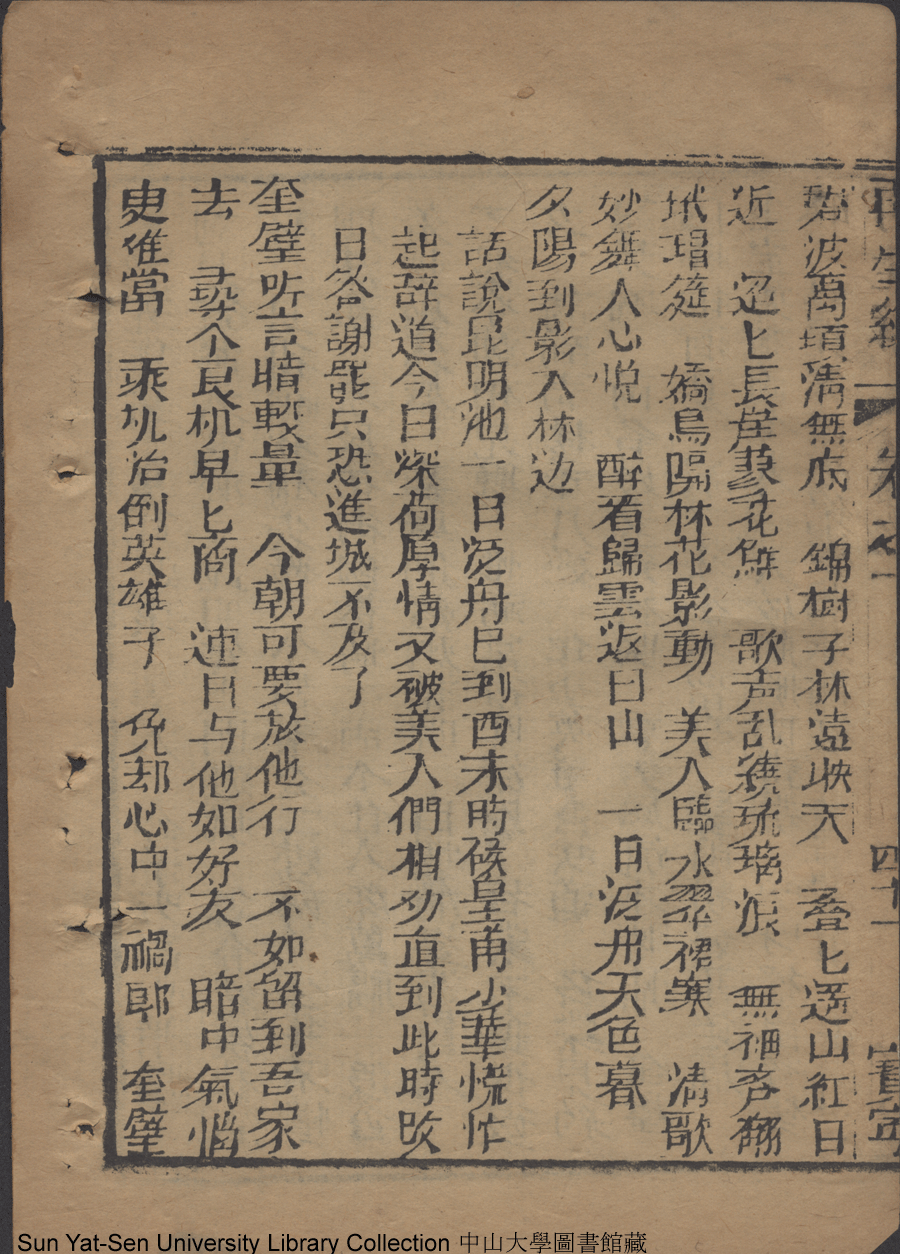 再生緣 卷之一 四十一 寶寧
碧波萬頃淸無底 錦樹子林遠映天 叠匕遥山紅日
近 迢匕長崖篆花鮮 歌声乱繞琉璃浪 無袖齐翻
玳瑁筵 嬌鳥隔林花影動 美人臨水翠裙寨 清歌
妙舞人心悦 醉看歸雲返日山 一日泛舟天色暮
夕陽到影入林边
話說昆明池一日泛舟巳到酉末時候皇甫少華慌忙
起辞道今日深荷厚情又破美人們相劝直到此時改
日答謝罷只恐進城不及了
奎璧听言暗較量 今朝可要放他行 不如留到吾家
去 尋个良机早匕商 連日与他如好友 暗中氣惱
更难當 乘机治倒英雄子 免却心中一禍郎 奎璧
Sun Yat-Sen University Library Collection 中山大學圖書館藏